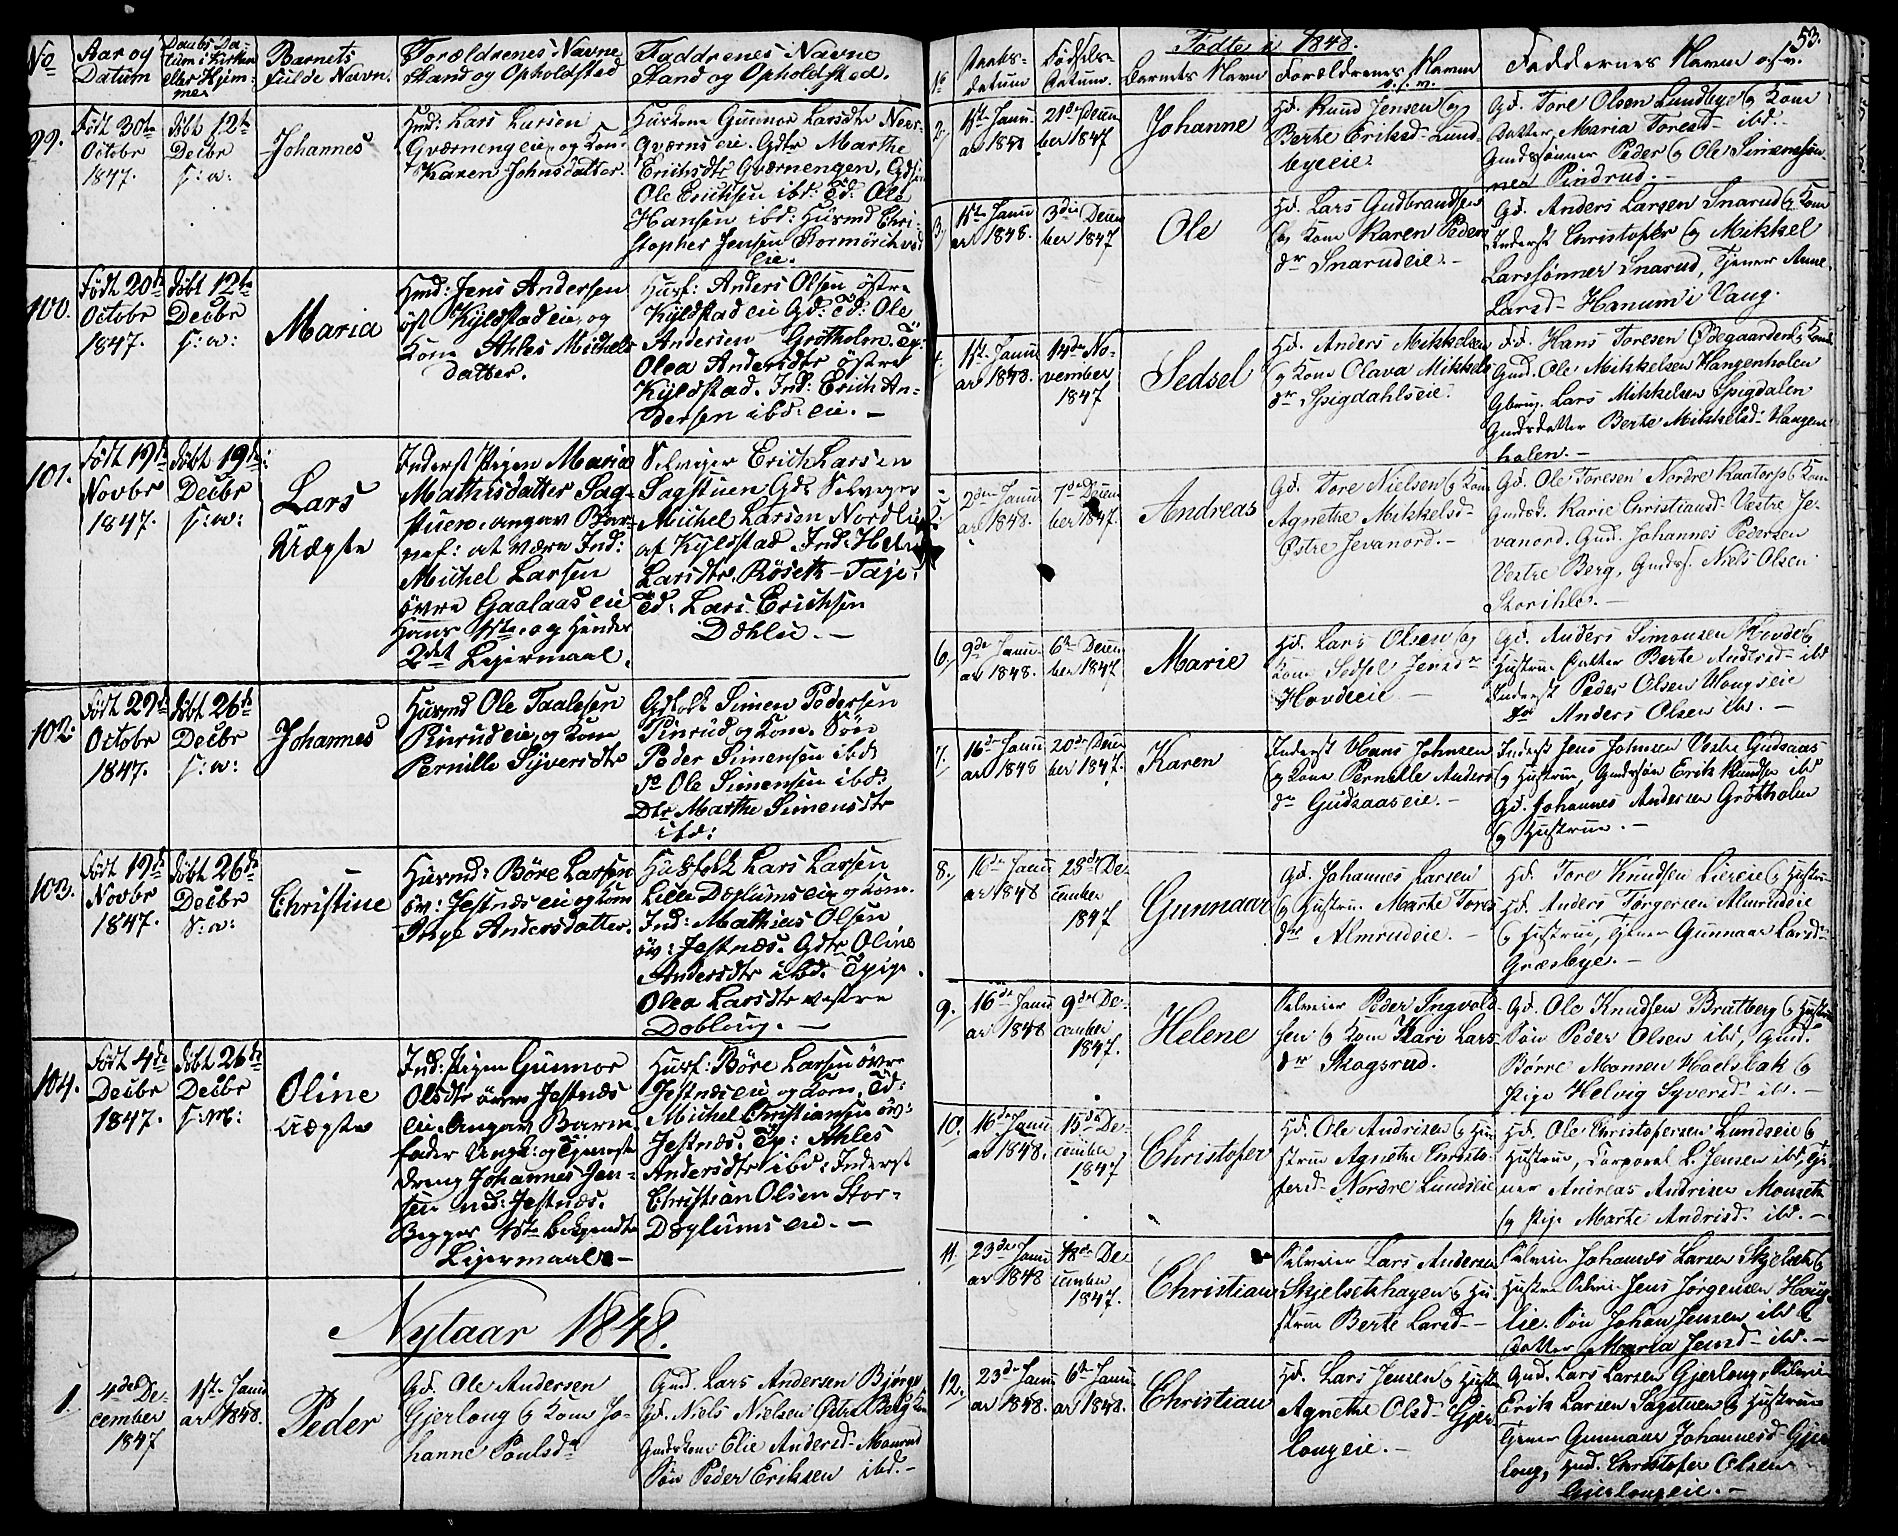 No
Aar og
Datum
Daabs Da-
tum i Kirken
eller Hjem-
met
Barnets
fulde Navn.
Forældrenes Navne
Stand og Opholdsted
Faddrenes Navne
Stand og Opholdsted.
99.
Født 30te
Octobr
1847.
døbt 12te
Decbr
s: a:
Johannes
Husmd: Lars Larsen
Qværnengeie, og Kone
Karen Johnsdatter.
Huskone Gunnor Larsdtr
Qværnseie. Gdtr Marthe
Erichsdtr Qværnengen,
Ole Erichsen ibd: Gd: Ole
Hansen ibd: Husmd Chri-
stopher Jensen
eie.
100.
Født 20de
Octobr
1847.
døbt 12te
Decbr
s: a:
Maria
Hmd: Jens Andersen
øst Kyldstadeie, og
Kone Ahles Michels
datter.
Husf: Anders Olsen østre
Kyldstadeie Gd: Ole
Andersen Grøtholm Tp:
Olea Andersdtr østre
Kyldstad. Ind: Erich An-
dersen ibd: eie. —
101.
Født 19de
Novbr
1847.
døbt 19de
Decbr
s: a:
Lars
Uægte
Inderst Pigen Maria
Mathisdatter Sag-
stuen, angav Bar-
nef: at være Ind:
Michel Larsen
øvre Gaalaas eie
Hans 1ste og hendes
2det Lejermaal.
Selvejer Erich Larsen
Sagstuen Gd: Selvejer
Michel Larsen Nordlie
af Kyldstad. Ind:
Larsdtr, Røseth-
Lars Erichsen
Dæhlie. —
102.
Født 29de
Octobr
1847.
døbt 26de
Decbr
s: a:
Johannes
Husmd Ole Taalesen
Pinrudeie, og Kone
Pernille Syversdtr
Gdfolk Simen Pedersen
Pinrud og Kone. Søn
Peder Simensen ibd:
Do Ole Simensen ibd:
Dtr Marthe Simensdtr
ibd:
103.
Født 19de
Novbr
1847.
døbt 26de
Decbr
s: a:
Christine
Husmd: Børe Larsen
øv: Jestnæseie og Kone
Inge Andersdatter.
Husfolk Lars Larsen
Lille Doglumseie, og Kone.
Ind: Mathias Olsen
øv: Jestnæs. Gdtr Oline
Andersdtr ibd: Tpige
Olea Larsdtr vestre
Doblong. —
104.
Født 4de
Decbr
1847.
døbt 26de
Decbr
s: a:
Oline
uægte
Ind: Pigen Gunnor
Olsdtr øvre Jestnæs
eie. Angav Barne-
fader Ungk: og Tjeneste
dreng Johannes Jen-
sen ned: Jestnæs.
Begges 1ste bekjendte
Lejermaal. —
Husf: Børe Larsen øvre
Jestnæseie og Kone. Gd:
Michel Christiansen øv:
Jestnæs. Tp: Ahles
Andersdtr ibd: Inderst
Christian Olsen Stor-
Doglumseie. —
Nytaar 1848.
1.
4de De-
cember
1847
1ste Janu
ar 1848.
Peder
Gd. Ole Andersen
Gjerlong og Kone Jo-
hanne Poulsdr
Gmd. Lars Andersen
Gd. Niels Nielsen Østre Berg
Gaardskone Elie Andersd-
Søn Peder Eriksen ibd. —
53.
Fødte i 1848.
No
Daabs-
datum
Fødsels-
datum.
Barnets Navn
Forældrenes Navne
o. s. v.
Faddernes Navne osv.
2.
1ste Janu-
ar 1848
21de Decem
ber 1847
Johanne
Hd. Knud Jensen og
Berte Eriksd- Lund-
byeeie.
Gd. Tore Olsen Lundbye og Kone
Datter Maria Toresd- ibd.
Gaardssønner Peder og Ole Simensøn-
ner Pindrud. —
3.
1ste Janu
ar 1848.
3die Decem
ber 1847
Ole
Hd. Lars Gudbrandsen
og Kone Karen Peders
dr Snarudeie. —
Gd. Anders Larsen Snarud og Kone
Inderst Christofer og Mikkel
Larssønner Snarud, Tjener Anne
Larsd- Hanum i Vang.
4.
1ste Janu
ar 1848.
14de No-
vember
1847
Sedsel
Hd. Anders Mikkelsen
og Kone Olava Mikkels
dr Spigdahlseie.
Hans Toresen Ødegaarden og Kone
Gmd. Ole Mikkelsen Hangenholen
Gbrug. Lars Mikkelsen Spigdalen
Gaardsdatter Berte Mikkelsd- Hangen-
holen. —
5.
2den Janu
ar 1848.
7de Decem
ber 1847.
Andreas
Gd. Tore Nielsen og Kone
Agnethe Mikkelsd-
Østre Jevanord. —
Gd. Ole Toresen Nordre Kaatorp og Kone
Gaardsd. Karie Christiansd- Vestre Je-
vanord. Gmd. Johannes Pedersen
Vestre Berg, Gaardss. Niels Olsen
Storihle. —
6.
9de Janu-
ar 1848.
6te Decem
ber 1847
Marie
Hd. Lars Olsen og
Kone Sedsel Jensdr
Hovdeeie. —
Gd. Anders Simonsen Hovde og
Hustrue Datter Berte Andersd- ibd
Inderst Peder Olsen
Anders Olsen ibd. —
7.
16de Janu
ar 1848
20de Decem
ber 1847.
Karen
Inderst Hans Johnsen
og Kone Pernelle Anders
dr Gudsaaseie. —
Inderst Jens Johnsen Vestre Gudsaas
og Hustrue, Gaardssøn Erik Knudsen ibd
Gd. Johannes Andersen Grøtholm
og Hustrue. —
8.
16de Janu
ar 1848
28de De-
cember
1847
Gunnaar
Gd. Johannes Larsen
og Hustrue Marte Tores
dr Almrudeie. —
Hd. Tore Knudsen Liereie og Hustrue
Hd. Anders Torgersen Almrudeie
og Hustrue, Tjener Gunnaar Larsd-
Græsbye. —
9.
16de Janu
ar 1848
9de De-
cember
1847.
Helene
Selveier Peder Ingvold-
sen og Kone Kari Lars
dr Skogsrud.
Gd. Ole Knudsen Brutberg og Hustrue
Søn Peder Olsen ibd, Gmd.
Børre Monsen Hoelsbak og
Pige Helvig Syversd- ibd. —
10.
16de Janu
ar 1848.
15de De-
cember
1847
Christofer
Hd. Ole Andrisen og Hu-
strue Agnethe Christo-
fersd- Nordre Lundseie
Hd. Ole Christofersen Lundseie og
Hustrue, Corporal L. Jensen ibd, Tje-
ner Andreas Andrisen Monset
og Pige Marte Andrisd- ibd. —
11.
23de Janu
ar 1848
18de De-
cember
1847.
Christian
Selveier Lars Andersen
Skjelsethagen og Hu-
strue Berte Larsd-
Selveier Johannes Larsen Skjelset og
Hustrue Jens Jørgensen Houg-
lie. Søn Johan Jensen ibd og
Datter Maria Jensd- ibd. —
12.
23de Janu
ar 1848.
6te Janu
ar 1848.
Christian
Hd. Lars Jensen og Hustrue
Agnethe Olsd- Gjer
longeie. —
Gmd. Lars Larsen Gjerlong, Selveier
Erik Larsen Sagstuen og Hustrue
Tjener Gunnaar Johannesd- Gjer
long, Gmd. Christofer Olsen
Gjerlongeie. —